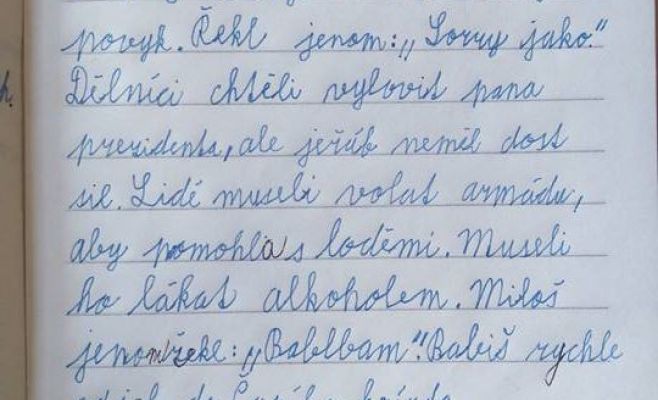 povyk. Řekl jenom: „Sorry jako."
Dělníci chtěli vylovit pana
prezidenta, ale jeřáb neměl dost
sil. Lidé museli volat armádu,
aby pomohla s loděmi. Museli
ho lákat alkoholem. Miloš
jenom řekl: „Bablbam". Babiš rychle